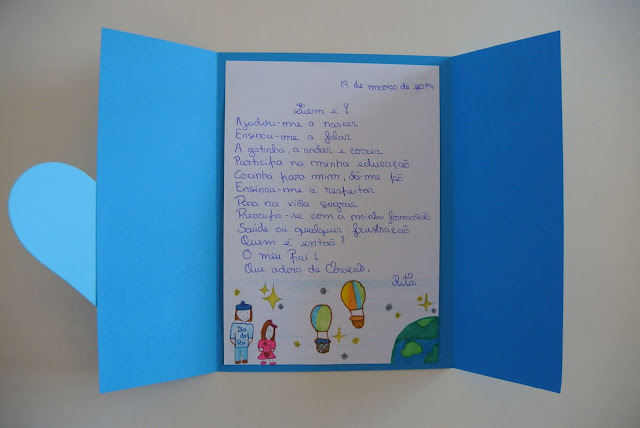 19 de março de 2019
Quem é?
Ajudou-me a nascer
Ensinou-me a falar
A gatinhar, a andar e correr
Participa na minha educação
Cozinha para mim, dá-me pão
Ensinou-me a respeitar
Para na vida
Preocupa-se com a minha formação
Saúde ou qualquer frustração
Quem é então?
O meu Pai!
Que adoro de Coração.
Rita
Dia do Pai